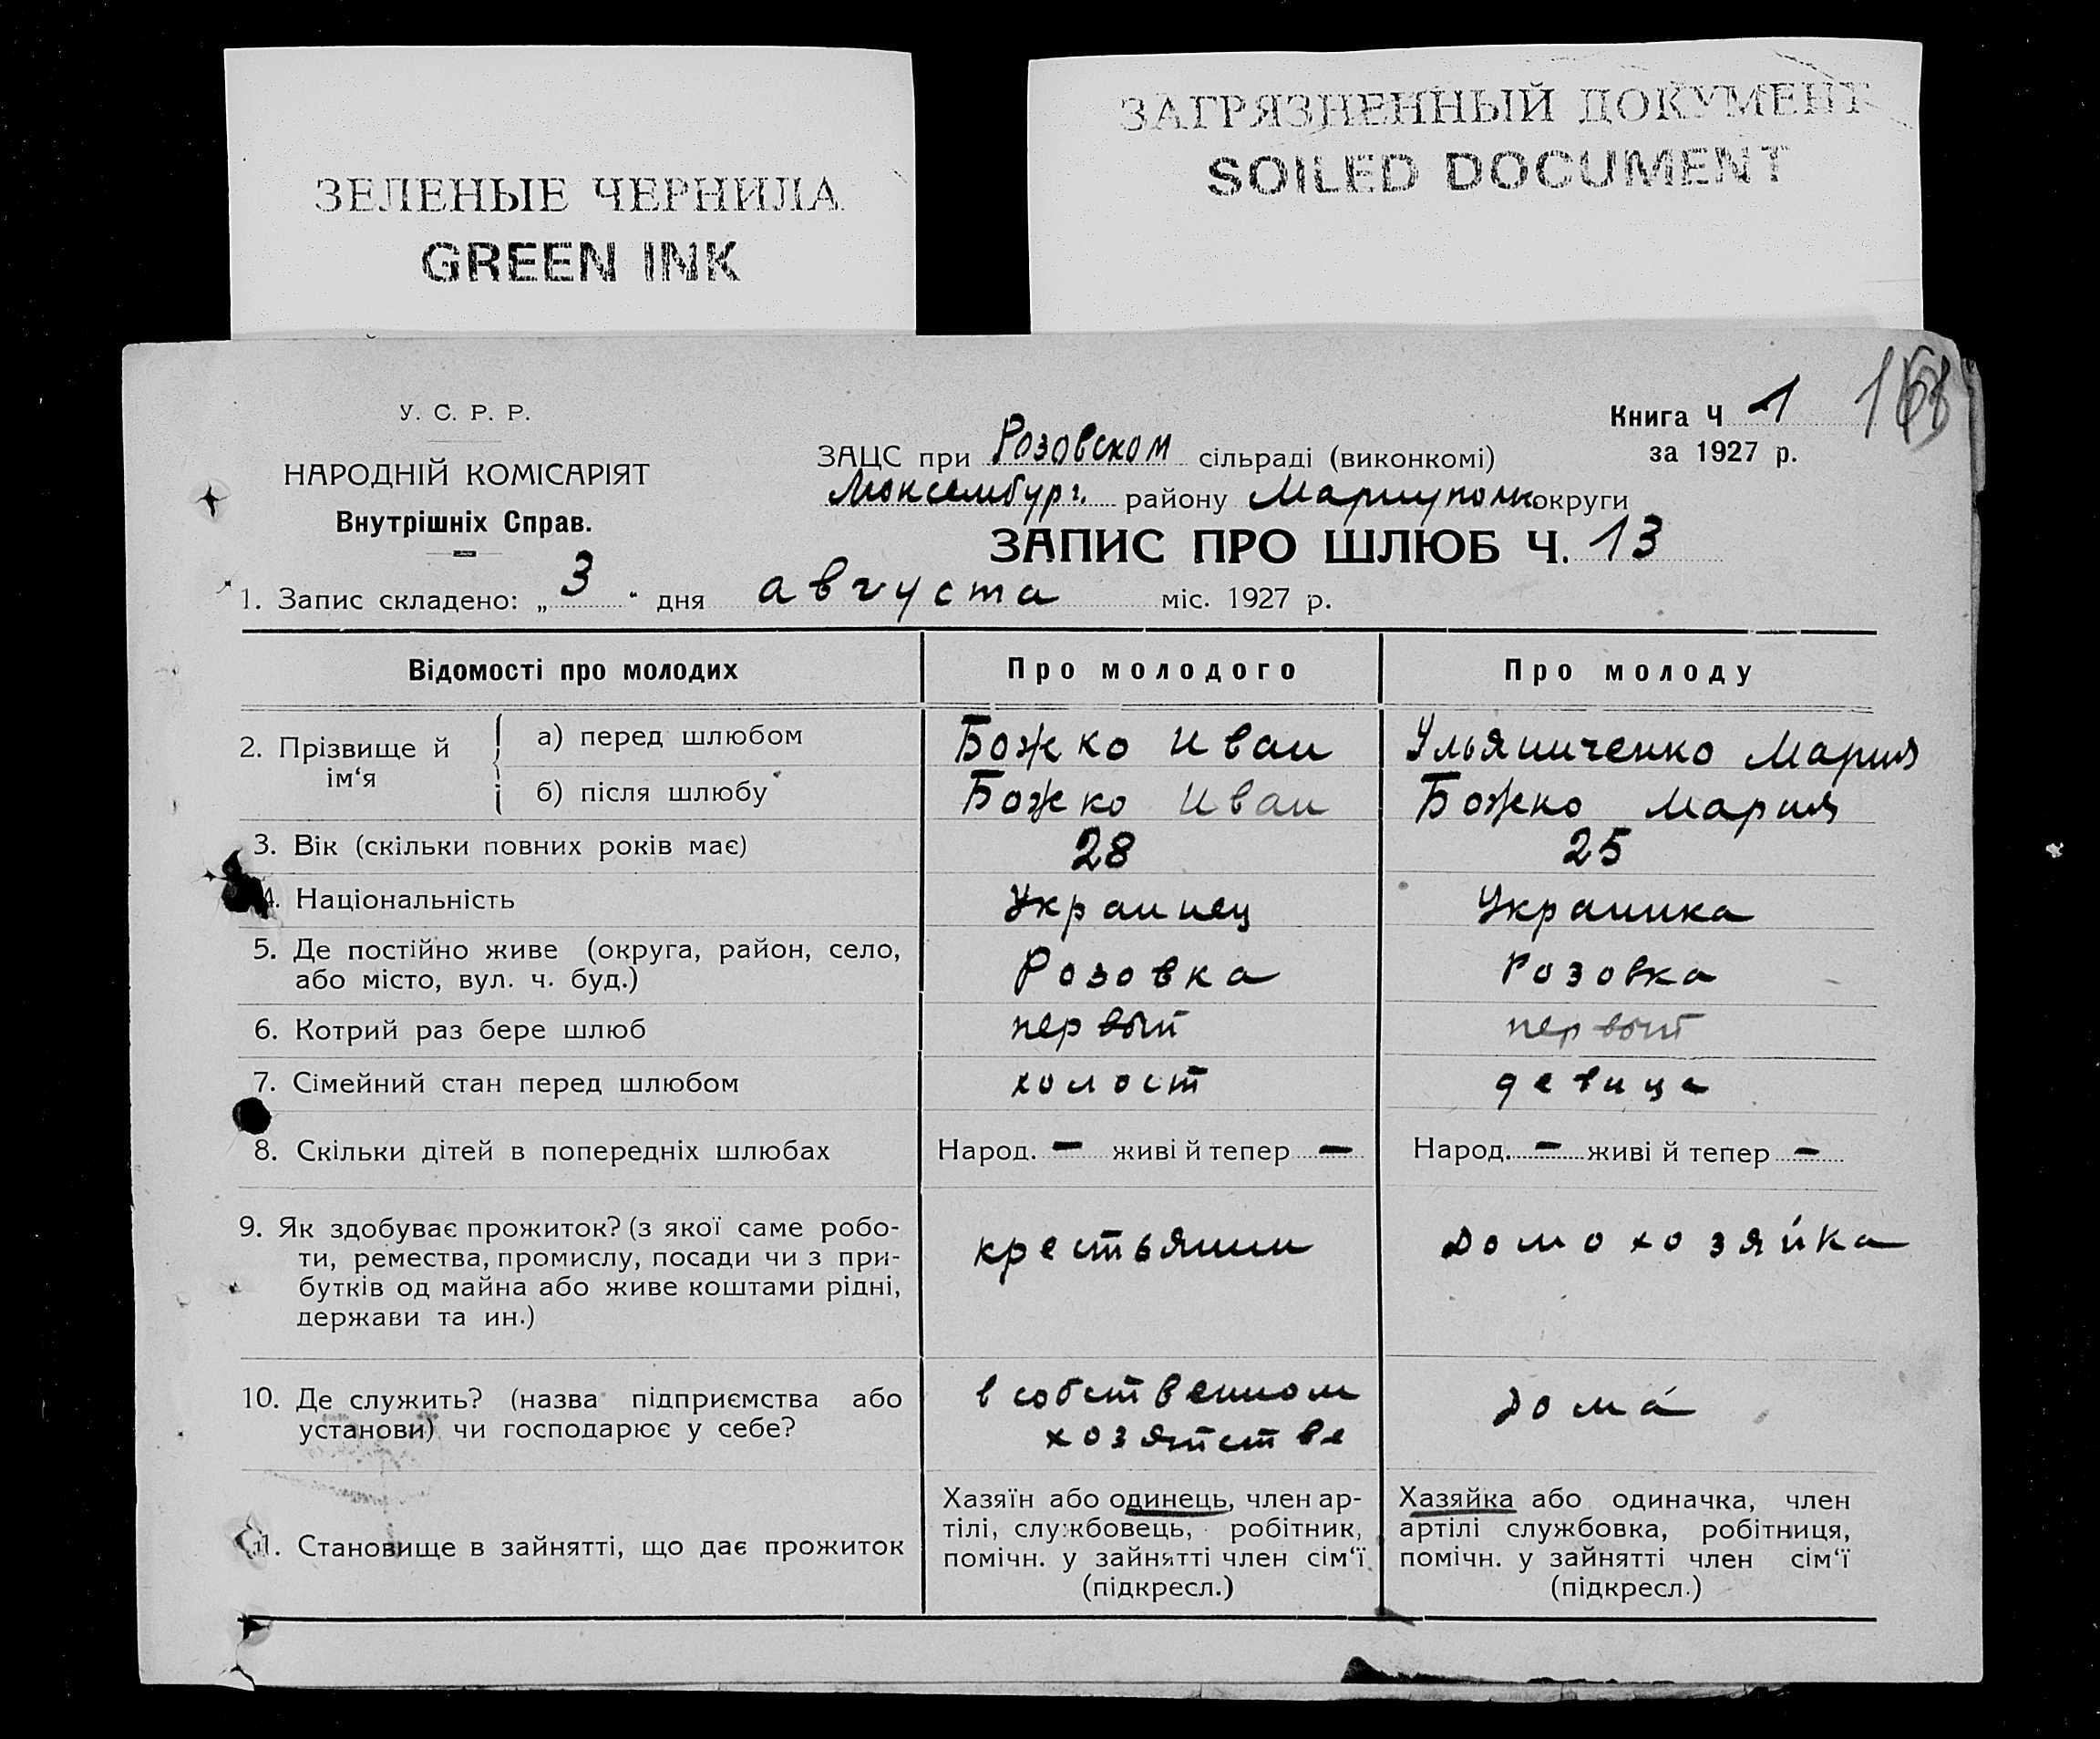 ЗЕЛЕНЫЕ ЧЕРНИЛА
GREEN INK
ЗАГРЯЗНЕННЫЙ ДОКУМЕНТ
SOILED DOCUMENT
У. С. Р. Р.
НАРОДНІЙ КОМІСАРІЯТ
Внутрішніх Справ.
Книга Ч 1
за 1927 р.
ЗАЦС при Розовском сільраді (виконкомі)
Люксембург. району Мариуполь округи
ЗАПИС ПРО ШЛЮБ Ч. 13
1. Запис складено: „ 3 " дня августа міс. 1927 р.
Відомості про молодих Про молодого Про молоду
2. Прізвище й ім‘я
а) перед шлюбом Божко Иван Ульяниченко Мария
б) після шлюбу Божко Иван Божко Мария
3. Вік (скільки повних років має) 28 25
4. Національність Украинец Украинка
5. Де постійно живе (округа, район, село,
або місто, вул. ч. буд.) Розовка Розовка
6. Котрий раз бере шлюб первый первый
7. Сімейний стан перед шлюбом холост девица
8. Скільки дітей в попередніх шлюбах Народ. — живі й тепер — Народ. — живі й тепер —
9. Як здобуває прожиток? (з якої саме робо-
ти, ремества, промислу, посади чи з при-
бутків од майна або живе коштами рідні,
держави та ин.)
крестьянин домохозяйка
10. Де служить? (назва підприємства або
установи) чи господарює у себе?
в собственном
хозяйстве
дома
11. Становище в зайнятті, що дає прожиток
Хазяїн або одинець, член ар-
тілі, службовець, робітник,
помічн. у зайнятті член сім‘ї
(підкресл.)
Хазяйка або одиначка, член
артілі службовка, робітниця,
помічн. у зайнятті член сім‘ї
(підкресл.)